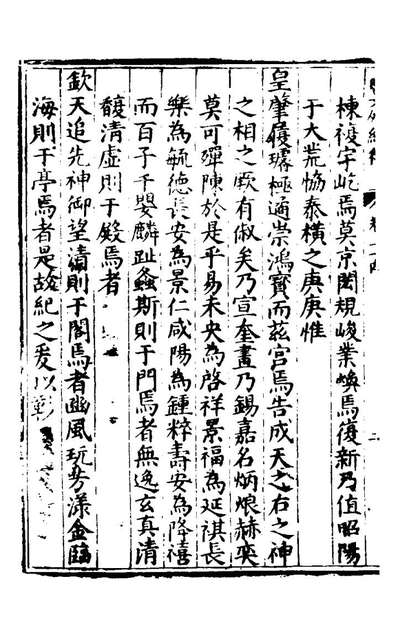 棟𥘵宇屹焉莫京閎規峻業煥焉復新乃值昭陽
于大荒恊泰橫之庚庚惟
皇肇履璿極遹崇鴻寳而茲宮焉告成天之右之神
之相之厥有俶矣乃宣奎畫乃錫嘉名炳烺赫奕
莫可殫陳於是平易未央為啓祥景福為延祺長
樂為毓德長安為景仁咸陽為鍾粹壽安為降禧
而百子千嬰麟趾螽斯則于門焉者無逸玄真清
馥清虛則于殿焉者
欽天追先神御望清則于閣焉者幽風玩芳漾金臨
海則于亭焉者是故紀之爰以彰